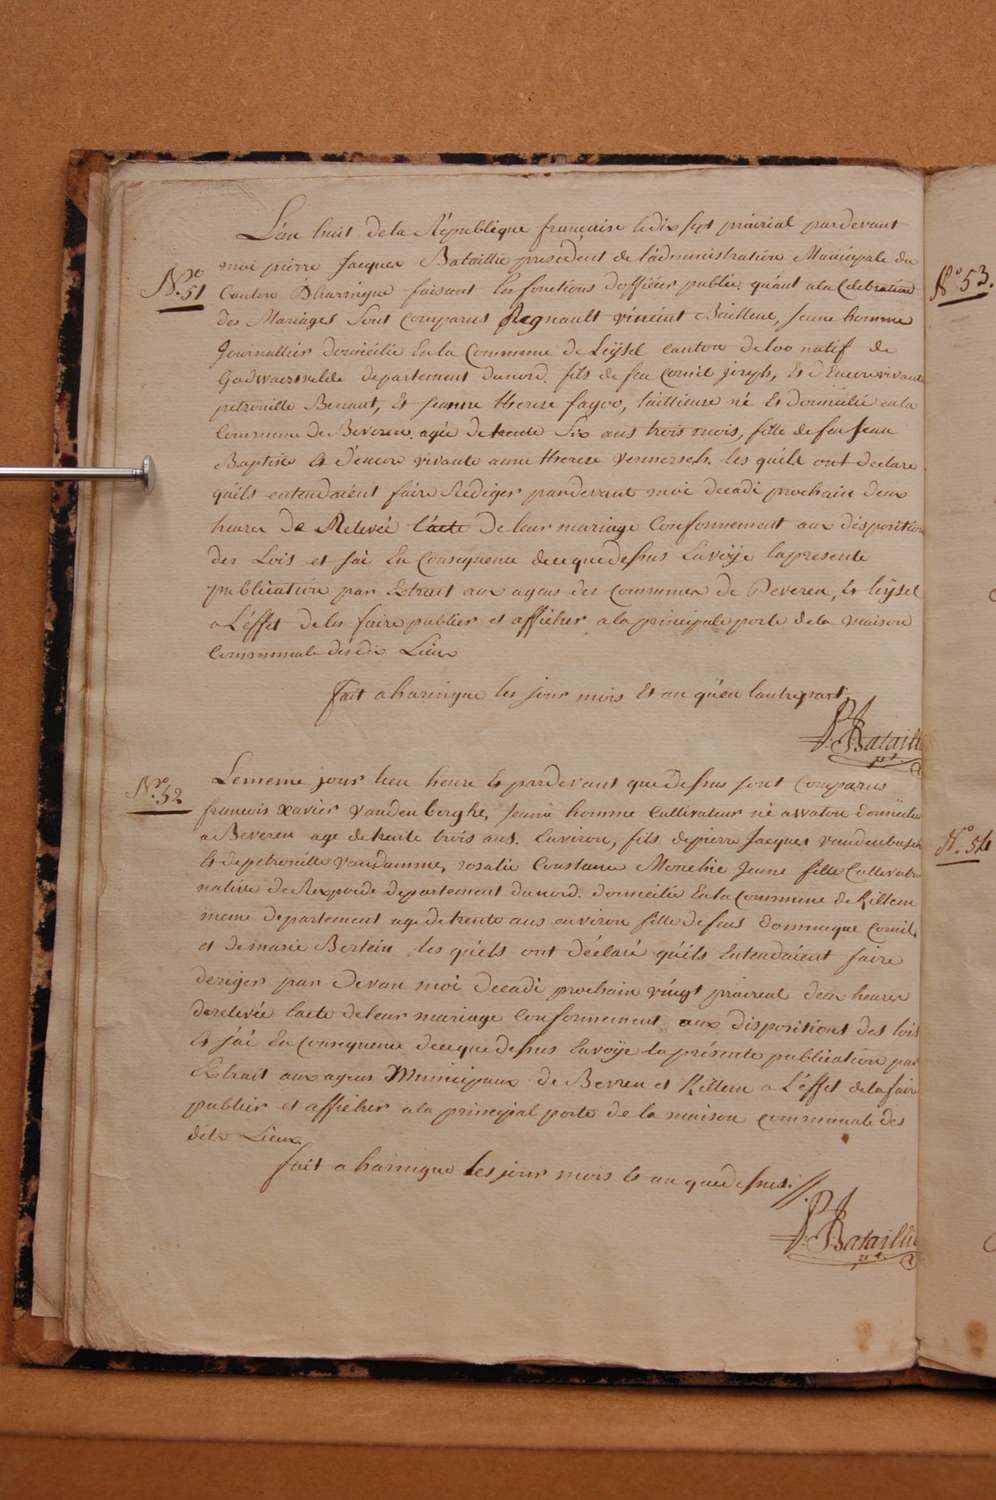 L'an huit de la République françoise le dix sept prairial pardevant
moi pierre Jacques Bataillie president de l'administration Municipale du
N.ro 51
Canton d'haringue faisant les fonctions d'officier public, quant a la Celebration
des Mariages Sont Comparus Regnault vincent Bailleul, Jeune homme
Journallier domicilié En la Commune de Leijsel canton de loo natif de
Godwaersvelde departement du nord. fils de feu Cornil joseph, Et d'Encore vivante
petronille Benaut, Et Jeanne therese fagoo, tailleuse né Et domicilié en la
Commune de Beveren, agée de trente Six ans trois mois, fille de feu Jean
Baptiste Et d'encore vivante anne therese vermersch. les quéls ont declaré
quils entendaient faire Rédiger pardevant moi decadi prochain deux
heures de Relevée l'acte de leur mariage Conformement aux disposition
des Lois et J'ai En Consequence de ce que dessus Envoÿe la presente
publication par Extrait aux agens des Communes de Beveren, Et leijsel
a L'éffet de les faire publier et afficher a la principale porte de la maison
Communale désdis Lieux
fait a haringue les jour mois Et an qu'en l'autre part,
P J Bataillie
p.t
N.ro 52
Le meme jour lieu heure Et pardevant que dessus sont Comparus
francois Xavier Vandenberghe, Jeune homme Cultivateur né a watou domicilie
a Beveren age de trente trois ans. Environ, fils de pierre Jacques vandenbusch
Et de petronille vandamme, rosalie Constance Monchie Jeune fille Cultivat
native de Rexpoede departement du nord. domicilié En la Commune de Killem
meme departement age de trente ans environ fille de feus dominique Cornil,
et de marie Bertein, les quéls ont déclaré quils Entendaient faire
deriger par devan moi decadi prochain vingt prairial deux heures
de relevée l'acte de leur mariage Conformement aux dispositions des lois
Et j'ai En Consequence de ce que dessus Envoÿe la présente publication par
Extrait aux agens Municipaux de Berren et Killem a L'éffet de la faire
publier et afficher a la principal porte de la maison communale des
dits Lieux
fait a haringue les jour mois Et an que dessus.//.
P J Bataillie
p.t
N.o 53.
N.o 54